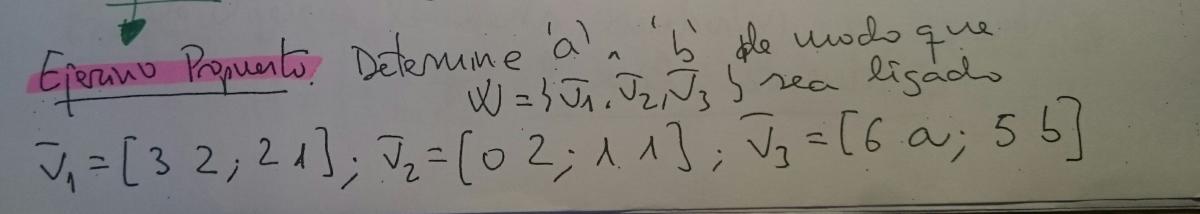 Ejercicio Propuesto. Determine 'a' y 'b' de modo que
W = { v̄1, v̄2, v̄3 } sea ligado
v̄1 = [3 2; 2 1]; v̄2 = [0 2; 1 1]; v̄3 = [6 a; 5 b]